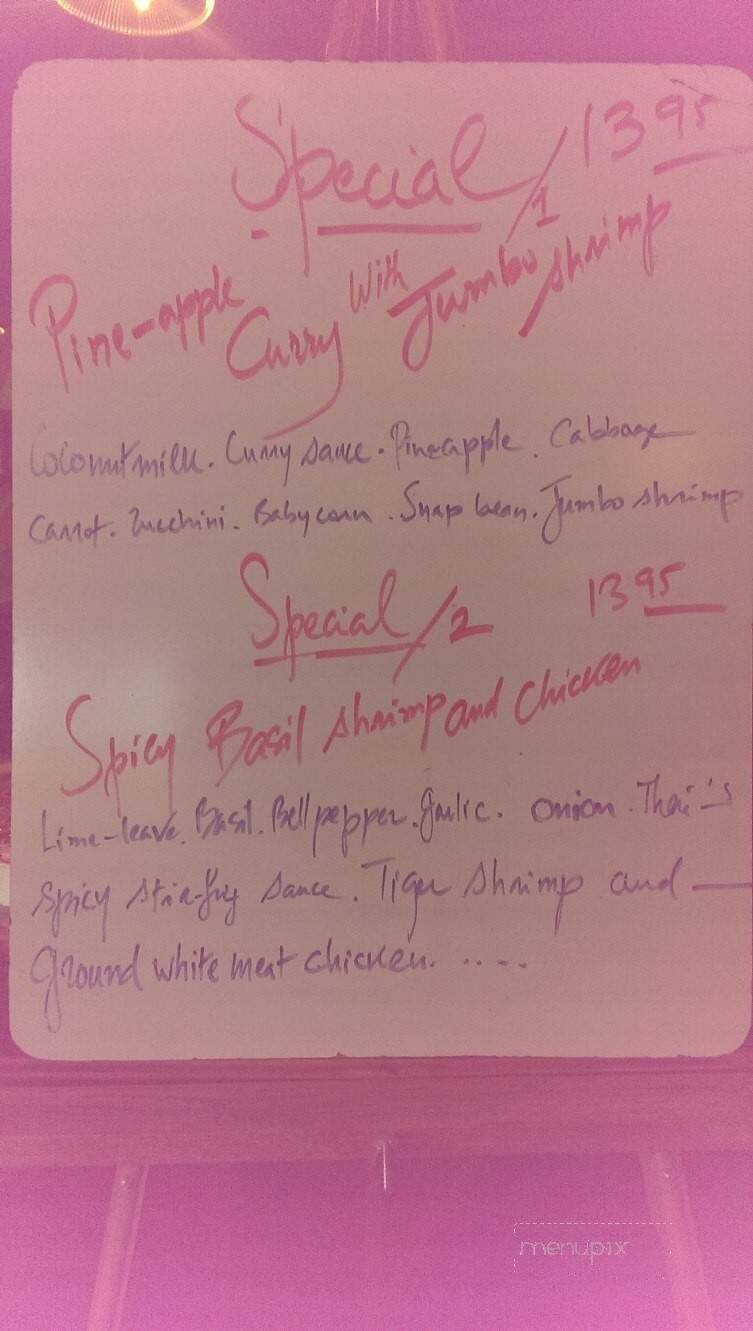 Special /1 13 95
Pine-apple Curry With Jumbo shrimp
Coconut milk. Curry sauce. Pineapple. Cabbage
Carrot. Zucchini. Baby corn. Snap bean. Jumbo shrimp
Special /2 13 95
Spicy Basil shrimp and chicken
Lime-leave. Basil. Bell pepper. garlic. onion. Thai's
spicy stir-fry sauce. Tiger shrimp and —
ground white meat chicken. .....
menupix